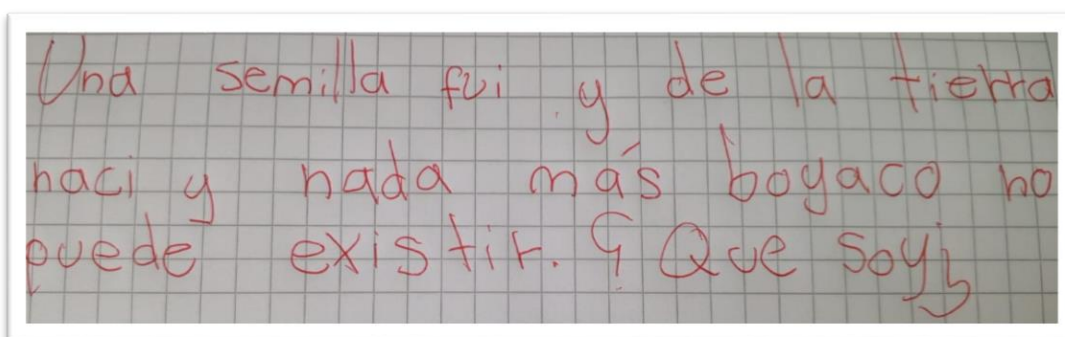 Una semilla fui y de la tierra
naci y nada más boyaco no
puede existir. ¿ Que soy?